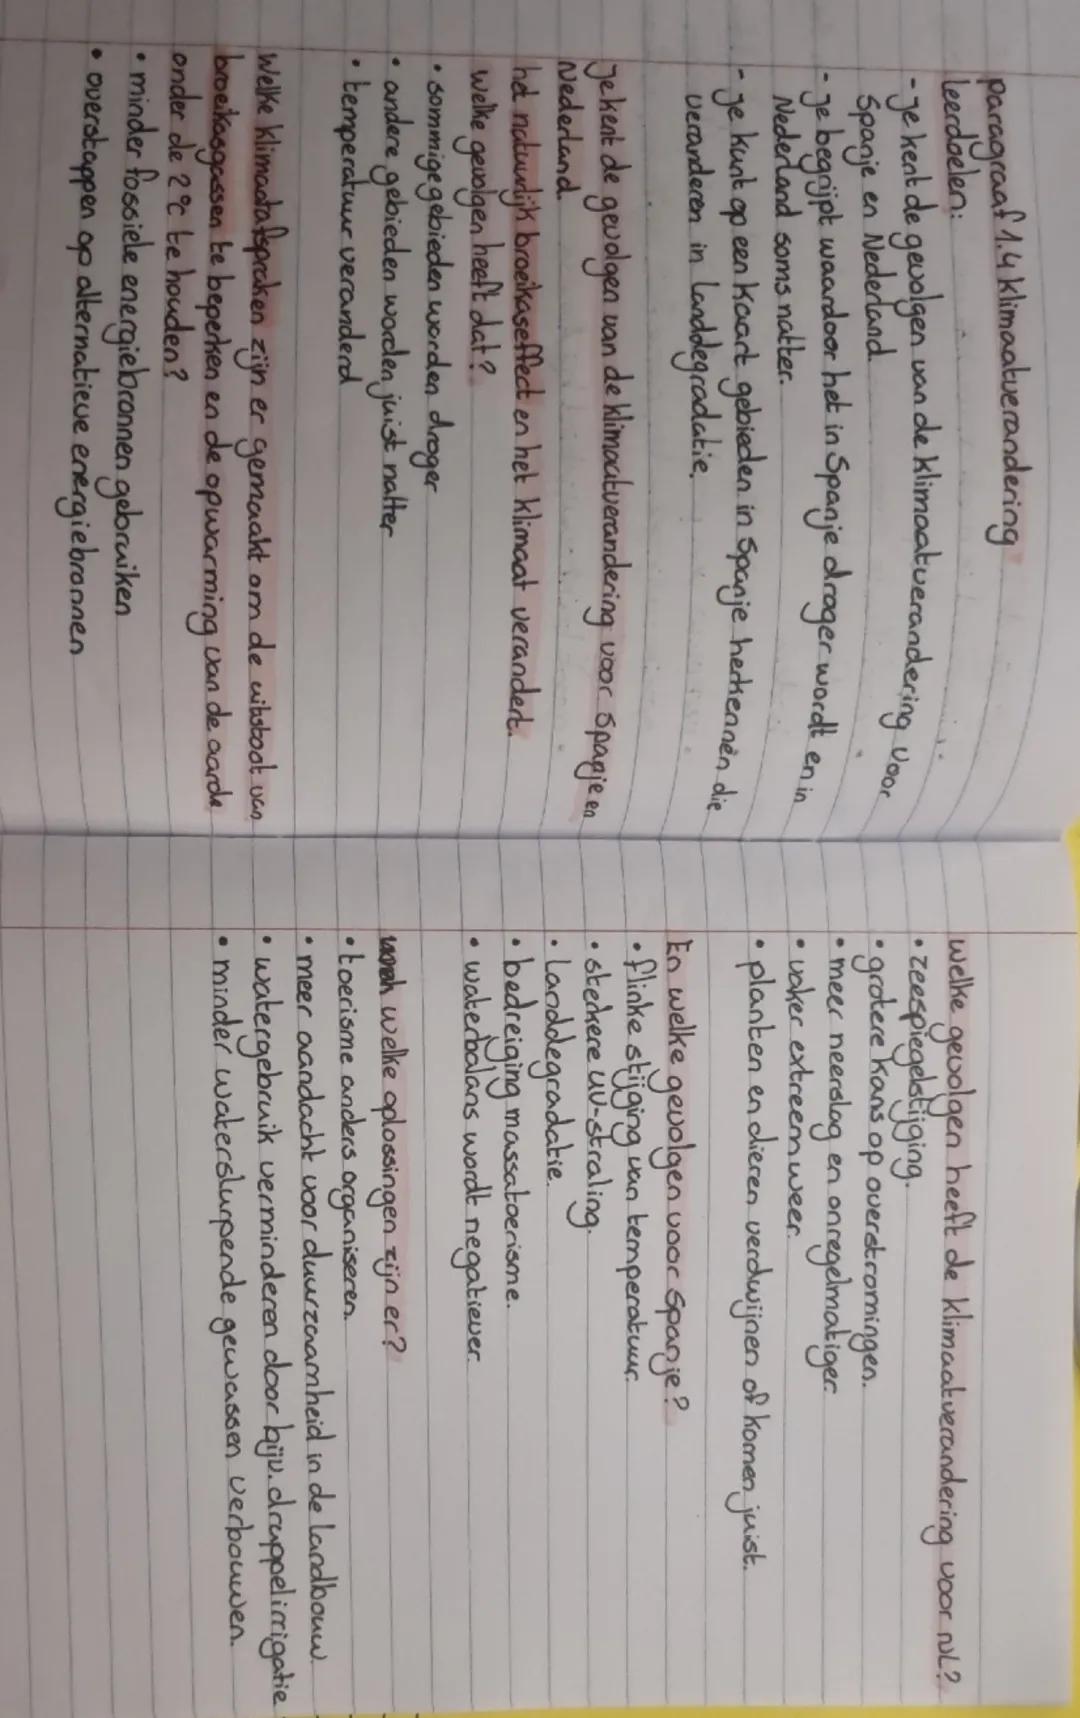 paragraaf 1.4 klimaatverandering
leerdoelen:
- je kent de gevolgen van de klimaatverandering voor
Spanje en Nederland.
- je begrijpt waardoor het in Spanje droger wordt en in
Nederland soms natter.
- je kunt op een kaart gebieden in Spanje herkennen die
veranderen in landdegradatie.
Je kent de gevolgen van de klimaatverandering voor Spanje en
Nederland.
het natuurlijk broeikaseffect en het klimaat verandert.
welke gevolgen heeft dat?
• sommige gebieden worden droger
• andere gebieden worden juist natter
• temperatuur veranderd
Welke klimaatafspraken zijn er gemaakt om de uitstoot van
broeikasgassen te beperken en de opwarming van de aarde
onder de 2°C te houden?
• minder fossiele energiebronnen gebruiken
• overstappen op alternatieve energiebronnen
welke gevolgen heeft de klimaatverandering voor NL?
• zeespiegelstijging.
• grotere kans op overstromingen.
• meer neerslag en onregelmatiger.
• vaker extreem weer.
• planten en dieren verdwijnen of komen juist.
En welke gevolgen voor Spanje?
• flinke stijging van temperatuur.
• sterkere UV-straling.
• landdegradatie.
• bedreiging massatoerisme.
• waterbalans wordt negatiever.
welke oplossingen zijn er?
• toerisme anders organiseren.
• meer aandacht voor duurzaamheid in de landbouw.
• watergebruik verminderen door bijv. druppelirrigatie
• minder waterslurpende gewassen verbouwen.